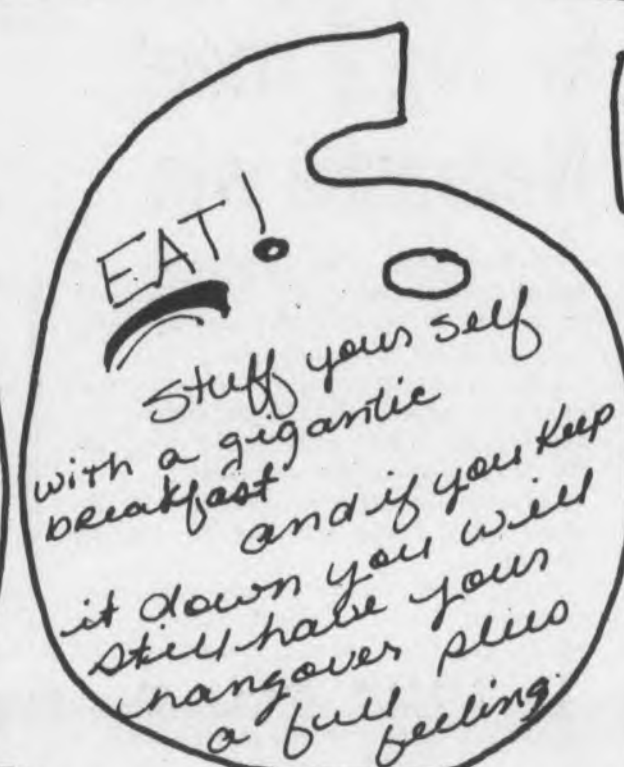 EAT!
Stuff your self
with a gigantic
breakfast
and if you keep
it down you will
still have your
hangover plus
a full feeling.